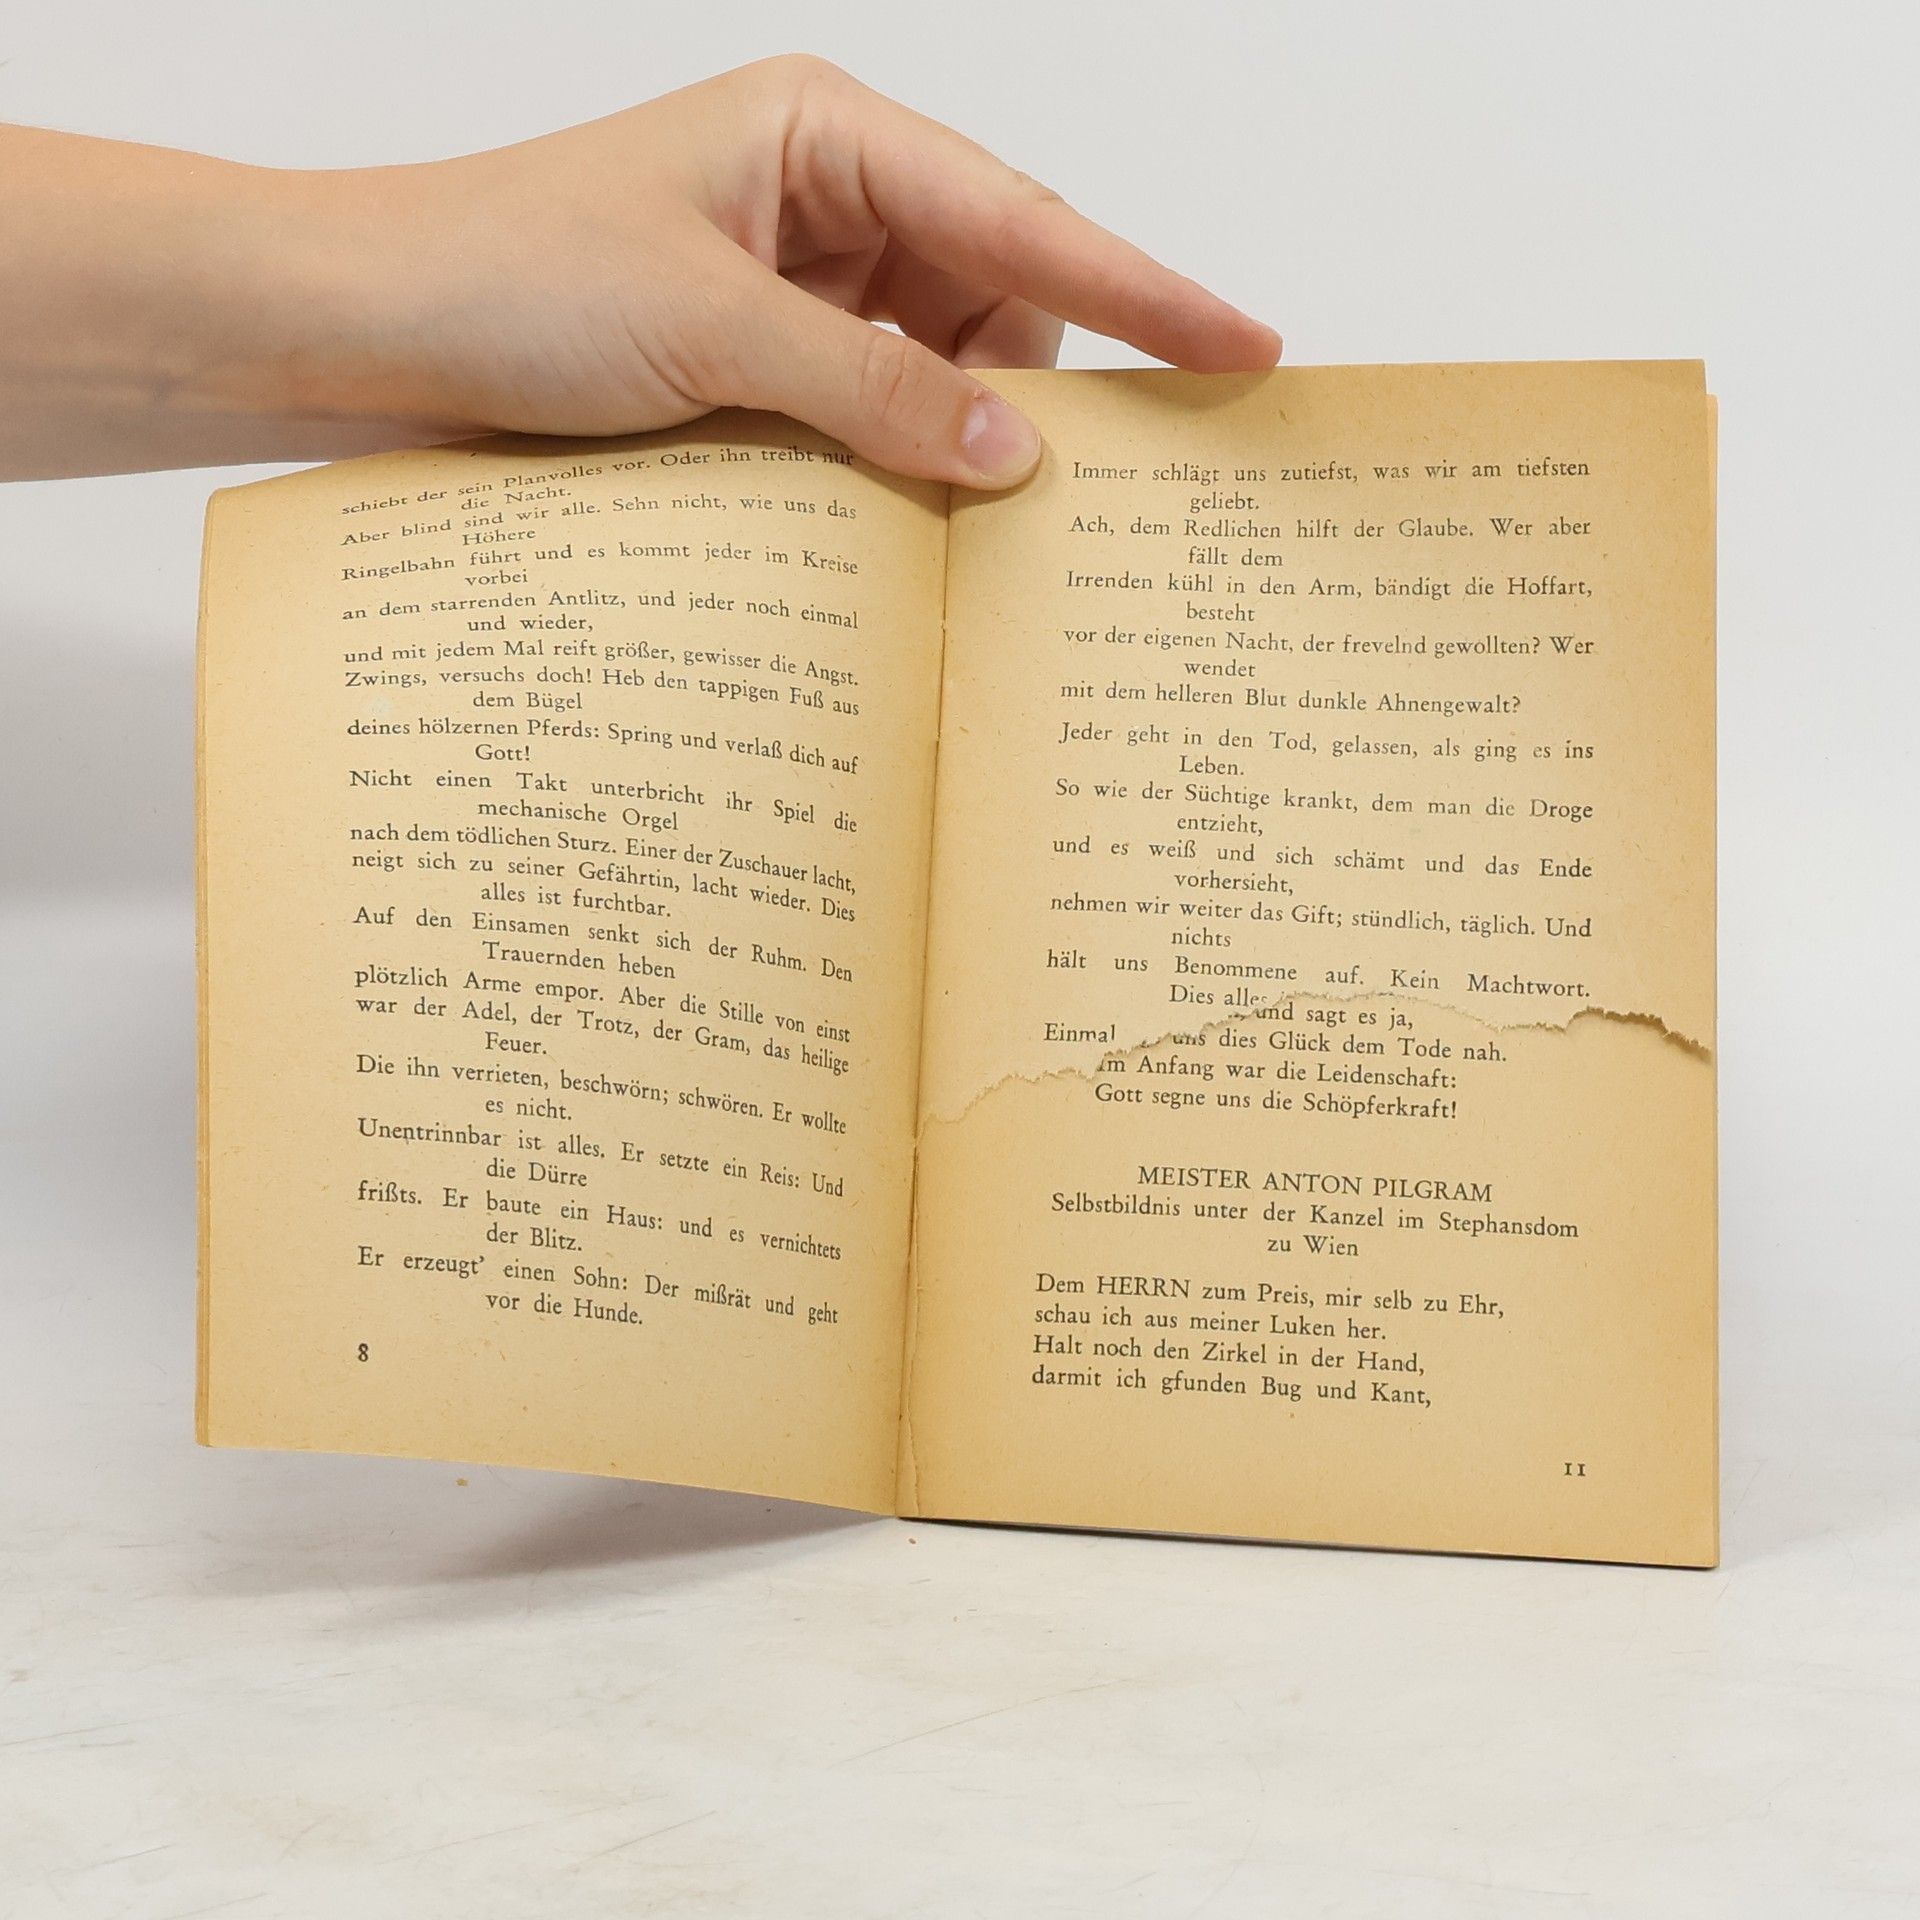 schiebt der sein Planvolles vor. Oder ihn treibt nur
die Nacht.
Aber blind sind wir alle. Sehn nicht, wie uns das
Höhere
Ringelbahn führt und es kommt jeder im Kreise
vorbei
an dem starrenden Antlitz, und jeder noch einmal
und wieder,
und mit jedem Mal reift größer, gewisser die Angst.
Zwings, versuchs doch! Heb den tappigen Fuß aus
dem Bügel
deines hölzernen Pferds: Spring und verlaß dich auf
Gott!
Nicht einen Takt unterbricht ihr Spiel die
mechanische Orgel
nach dem tödlichen Sturz. Einer der Zuschauer lacht,
neigt sich zu seiner Gefährtin, lacht wieder. Dies
alles ist furchtbar.
Auf den Einsamen senkt sich der Ruhm. Den
Trauernden heben
plötzlich Arme empor. Aber die Stille von einst
war der Adel, der Trotz, der Gram, das heilige
Feuer.
Die ihn verrieten, beschwörn; schwören. Er wollte
es nicht.
Unentrinnbar ist alles. Er setzte ein Reis: Und
die Dürre
frißts. Er baute ein Haus: und es vernichtets
der Blitz.
Er erzeugt’ einen Sohn: Der mißrät und geht
vor die Hunde.
8
Immer schlägt uns zutiefst, was wir am tiefsten
geliebt.
Ach, dem Redlichen hilft der Glaube. Wer aber
fällt dem
Irrenden kühl in den Arm, bändigt die Hoffart,
besteht
vor der eigenen Nacht, der frevelnd gewollten? Wer
wendet
mit dem helleren Blut dunkle Ahnengewalt?
Jeder geht in den Tod, gelassen, als ging es ins
Leben.
So wie der Süchtige krankt, dem man die Droge
entzieht,
und es weiß und sich schämt und das Ende
vorhersieht,
nehmen wir weiter das Gift; stündlich, täglich. Und
nichts
hält uns Benommene auf. Kein Machtwort.
Dies alles
und sagt es ja,
Einmal uns dies Glück dem Tode nah.
Im Anfang war die Leidenschaft:
Gott segne uns die Schöpferkraft!
MEISTER ANTON PILGRAM
Selbstbildnis unter der Kanzel im Stephansdom
zu Wien
Dem HERRN zum Preis, mir selb zu Ehr,
schau ich aus meiner Luken her.
Halt noch den Zirkel in der Hand,
darmit ich gfunden Bug und Kant,
11